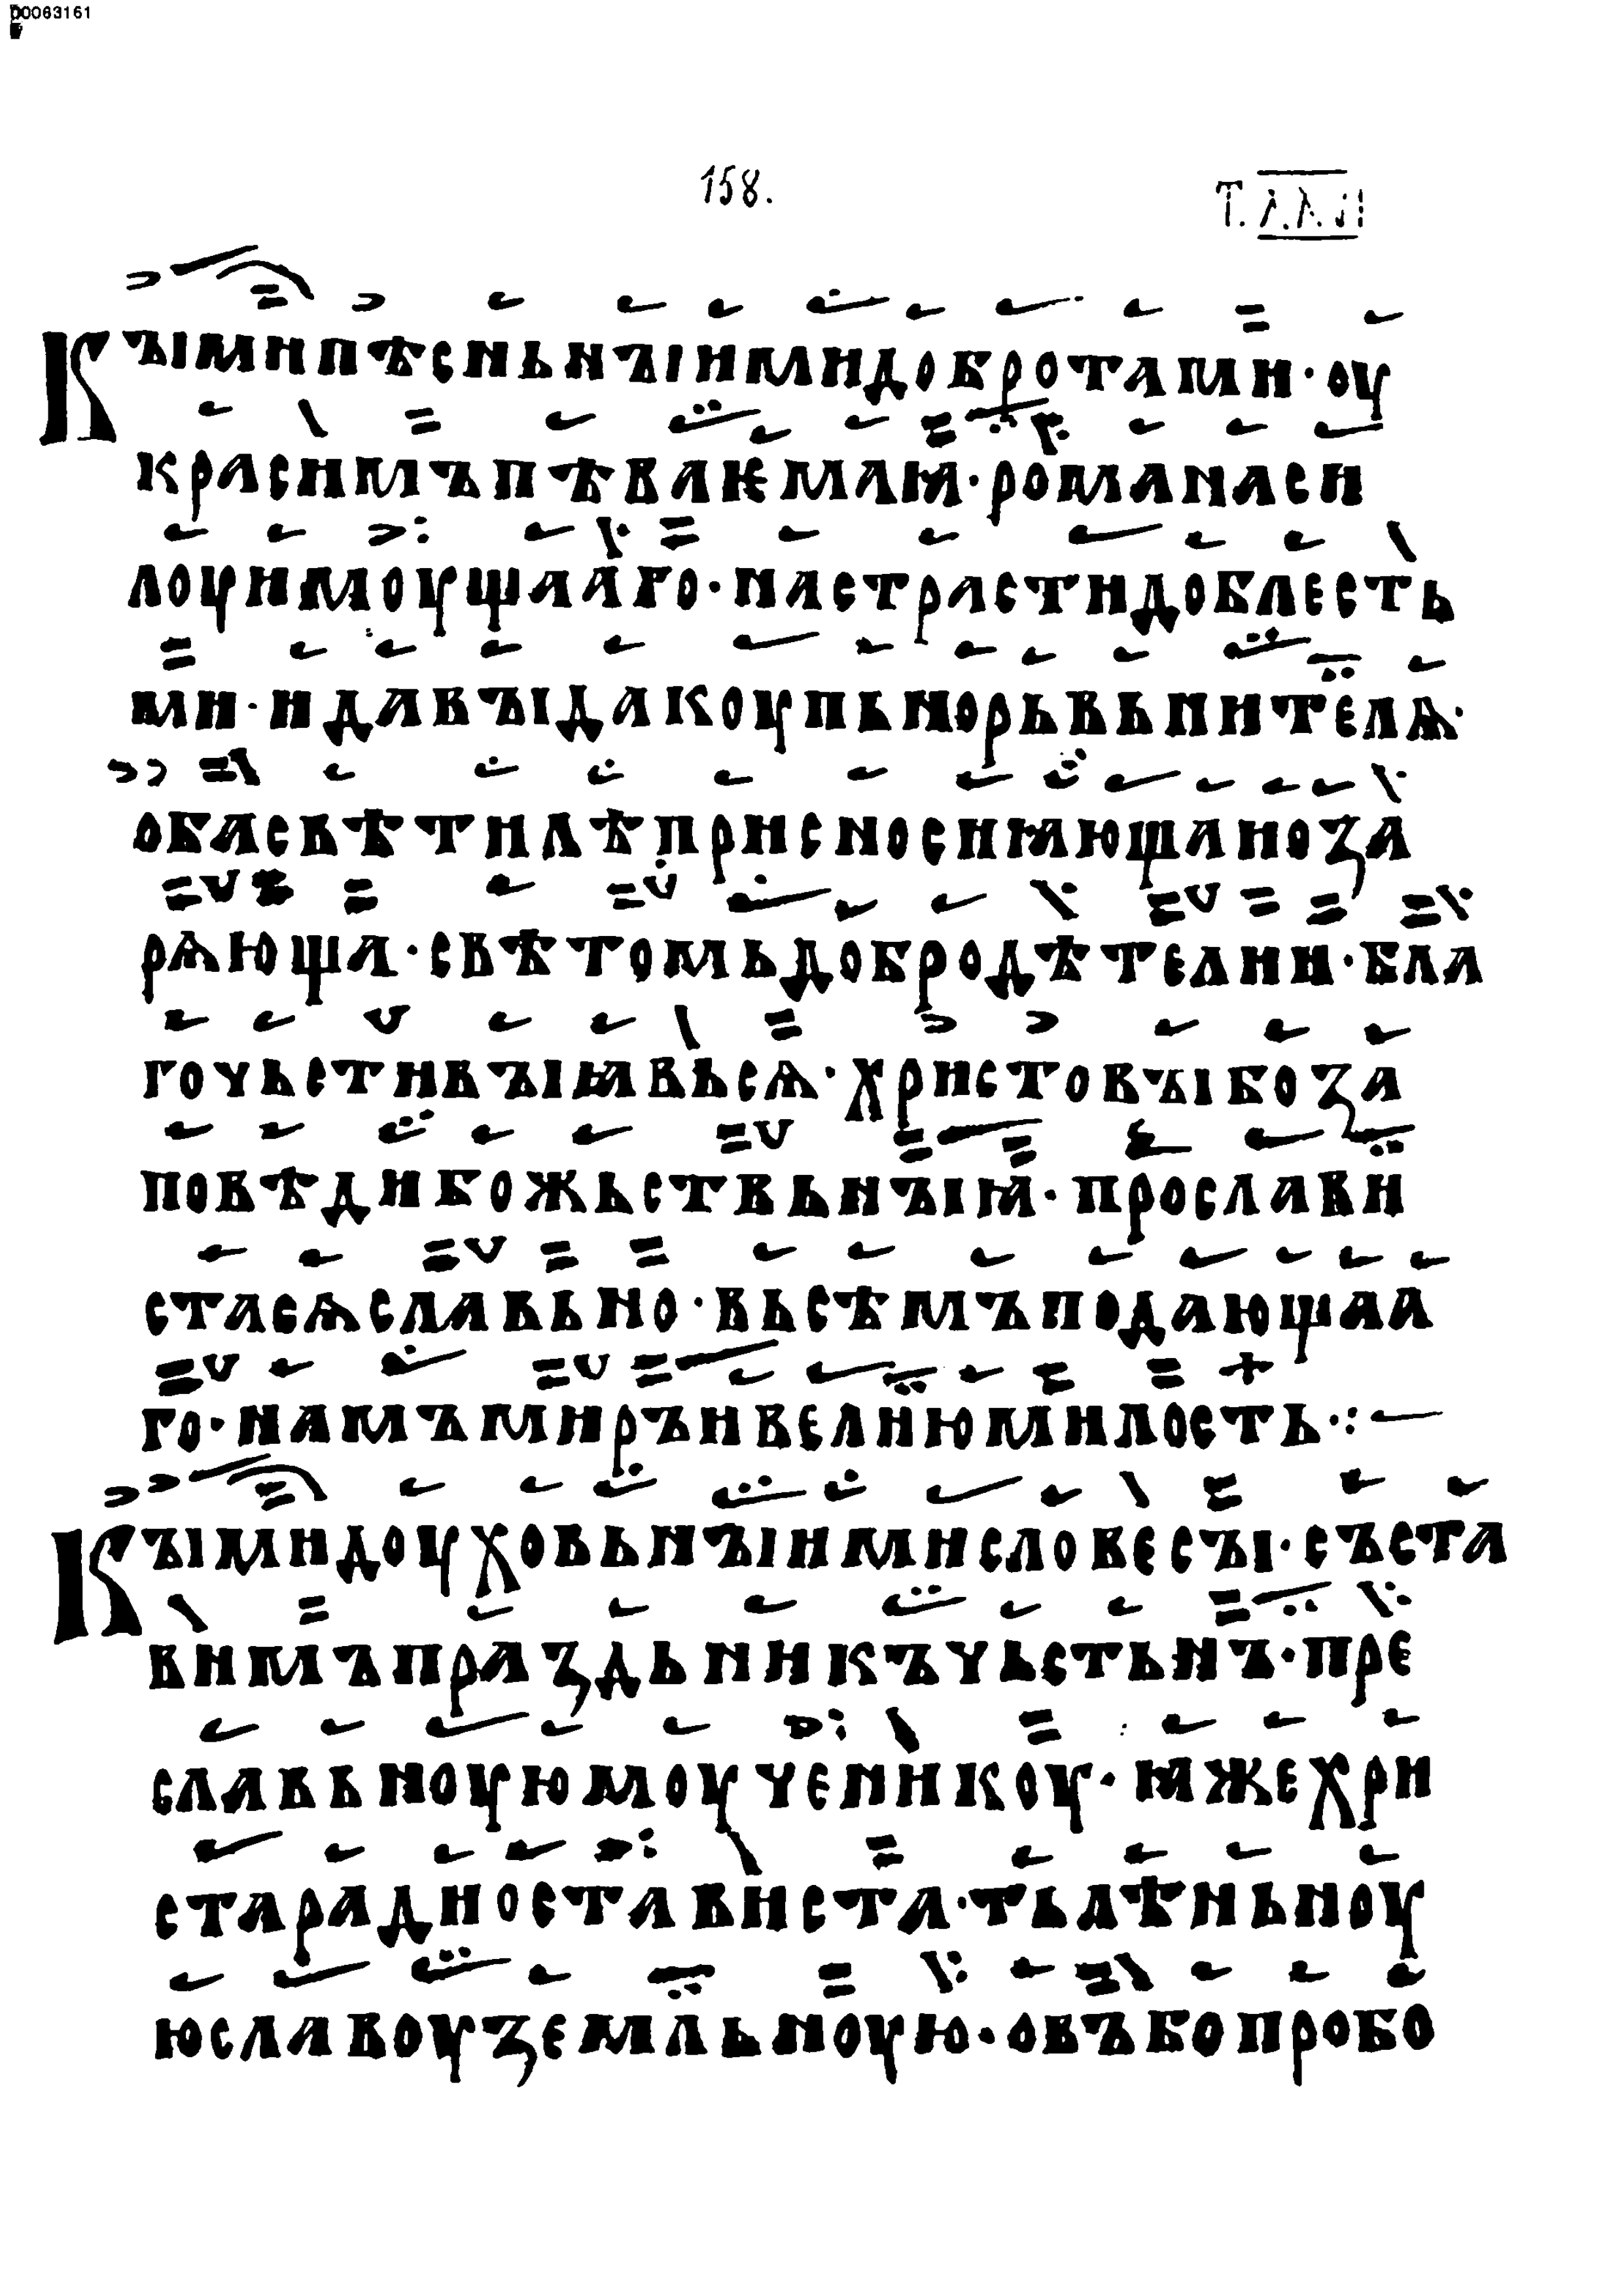 00063161
158.
Къıмипѣсньнъıимидобротами·оу
красимъпѣваѥмаꙗ·романаси
лоуимоущааго·настрастидоблесть
ми·идавъıдакоупьнорьвьнителѧ·
обасвѣтилѣприсносиꙗющаиоза
рѧюща·свѣтомьдобродѣтелии·бла
гочьстивъıꙗвьсѧ·христовъıбоза
повѣдибожьствьнъıꙗ·прослави
стасѧславьно·вьсѣмъподающаа
го·намъмиръивелиюмилость·:—
Къıмидоуховьнъıимисловесъı·съста
вимъпраздьникъчьстьнъ·пре
славьноуюмоученикоу·ꙗжехри
старадиостависта·тьлѣньноу
юславоуземльноую·овъбопробо